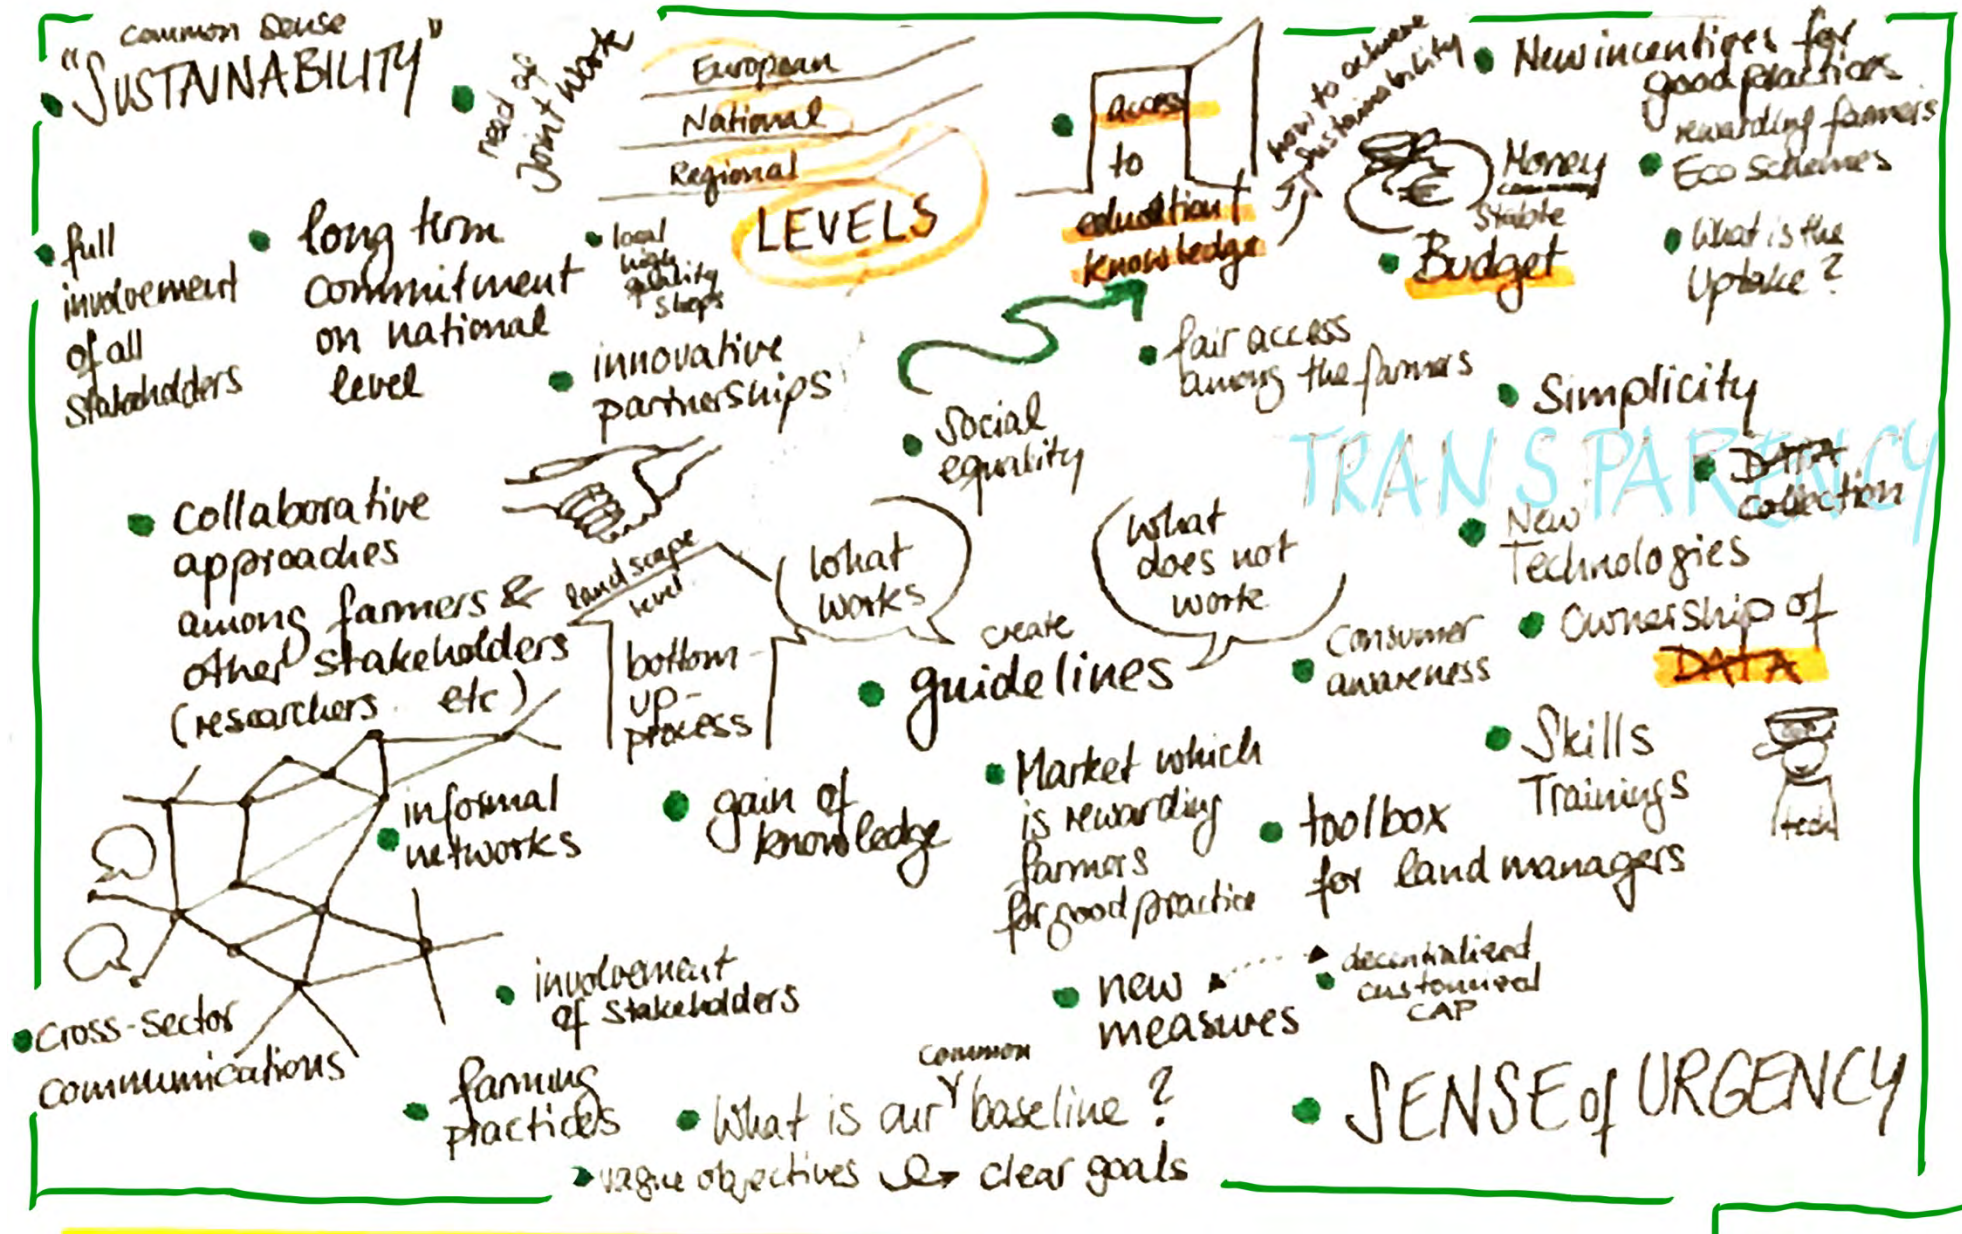 common sense
"SUSTAINABILITY"
need of
Joint work
European
National
Regional
LEVELS
access
to
education/
knowledge
how to achieve
sustainability
New incentives for
good practices
rewarding farmers
Eco schemes
Money
Stable
Budget
What is the
Uptake?
full
involvement
of all
stakeholders
long term
commitment
on national
level
local
high
quality
shops
innovative
partnerships
fair access
among the farmers
social
equality
Simplicity
TRANSPARENCY
DATA
collection
New
Technologies
Ownership of
DATA
collaborative
approaches
among farmers &
other stakeholders
(researchers. etc)
landscape
level
bottom-
up-
process
What
works
What
does not
work
create
guidelines
Consumer
awareness
Skills
Trainings
tech
informal
networks
gain of
knowledge
Market which
is rewarding
farmers
for good practice
toolbox
for land managers
involvement
of stakeholders
new
measures
decentralized
customized
CAP
cross-sector
communications
farming
practices
common
What is our baseline?
vague objectives
clear goals
SENSE of URGENCY